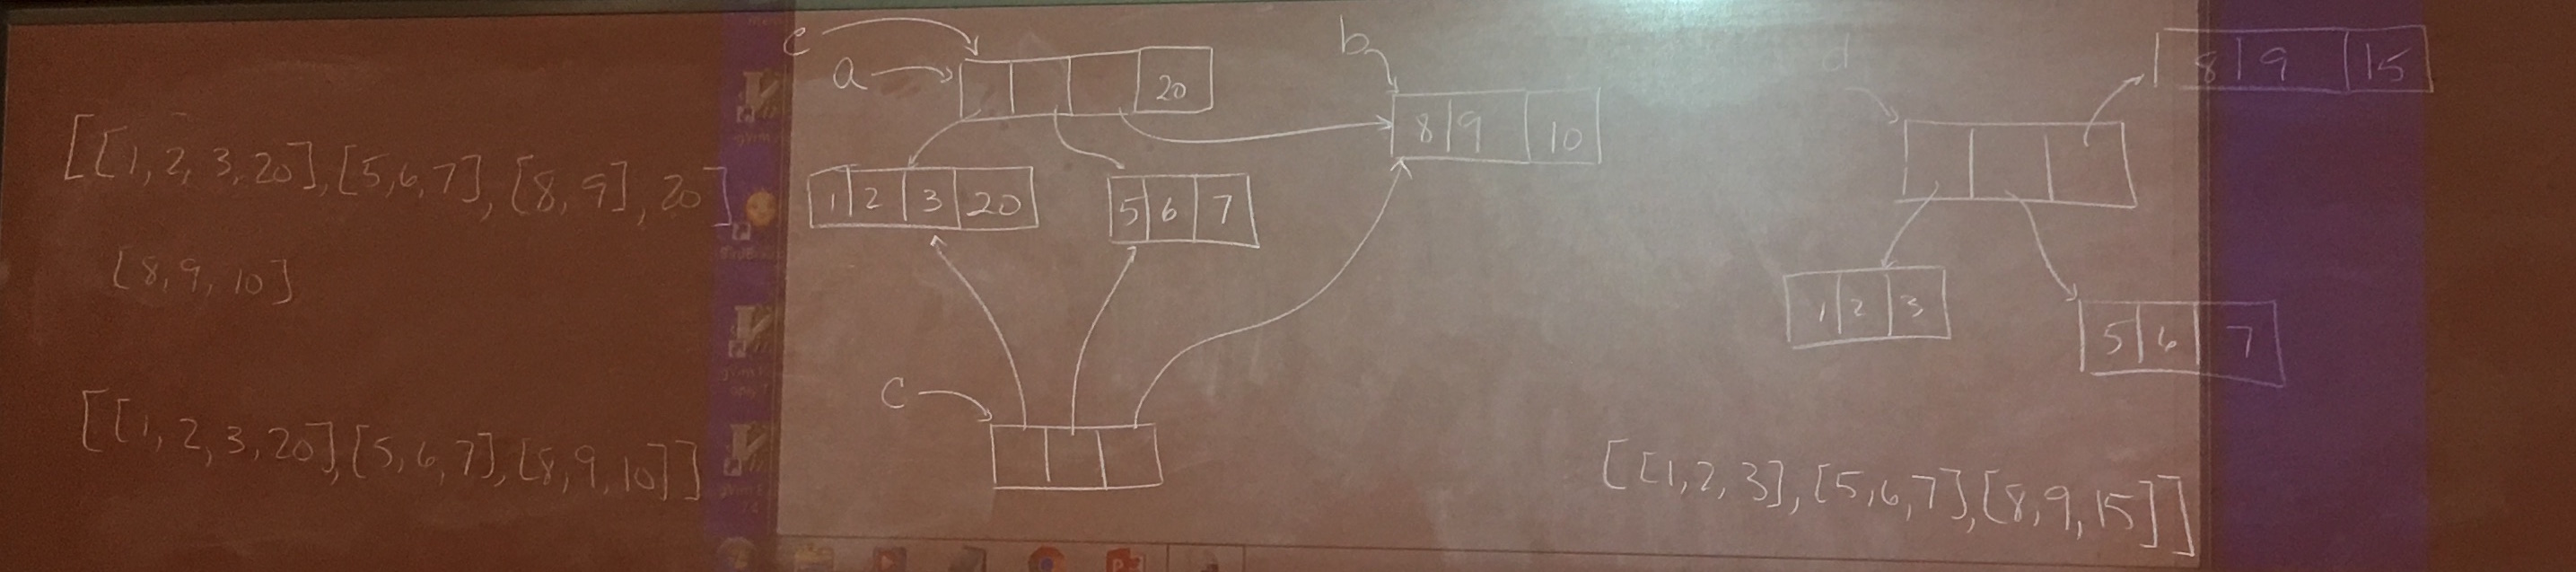 [[1, 2, 3, 20], [5, 6, 7], [8, 9], 20]
[8, 9, 10]
[[1, 2, 3, 20], [5, 6, 7], [8, 9, 10]]
e
a
20
1 2 3 20
5 6 7
c
b
8 9 10
d
8 9 15
1 2 3
5 6 7
[[1, 2, 3], [5, 6, 7], [8, 9, 15]]